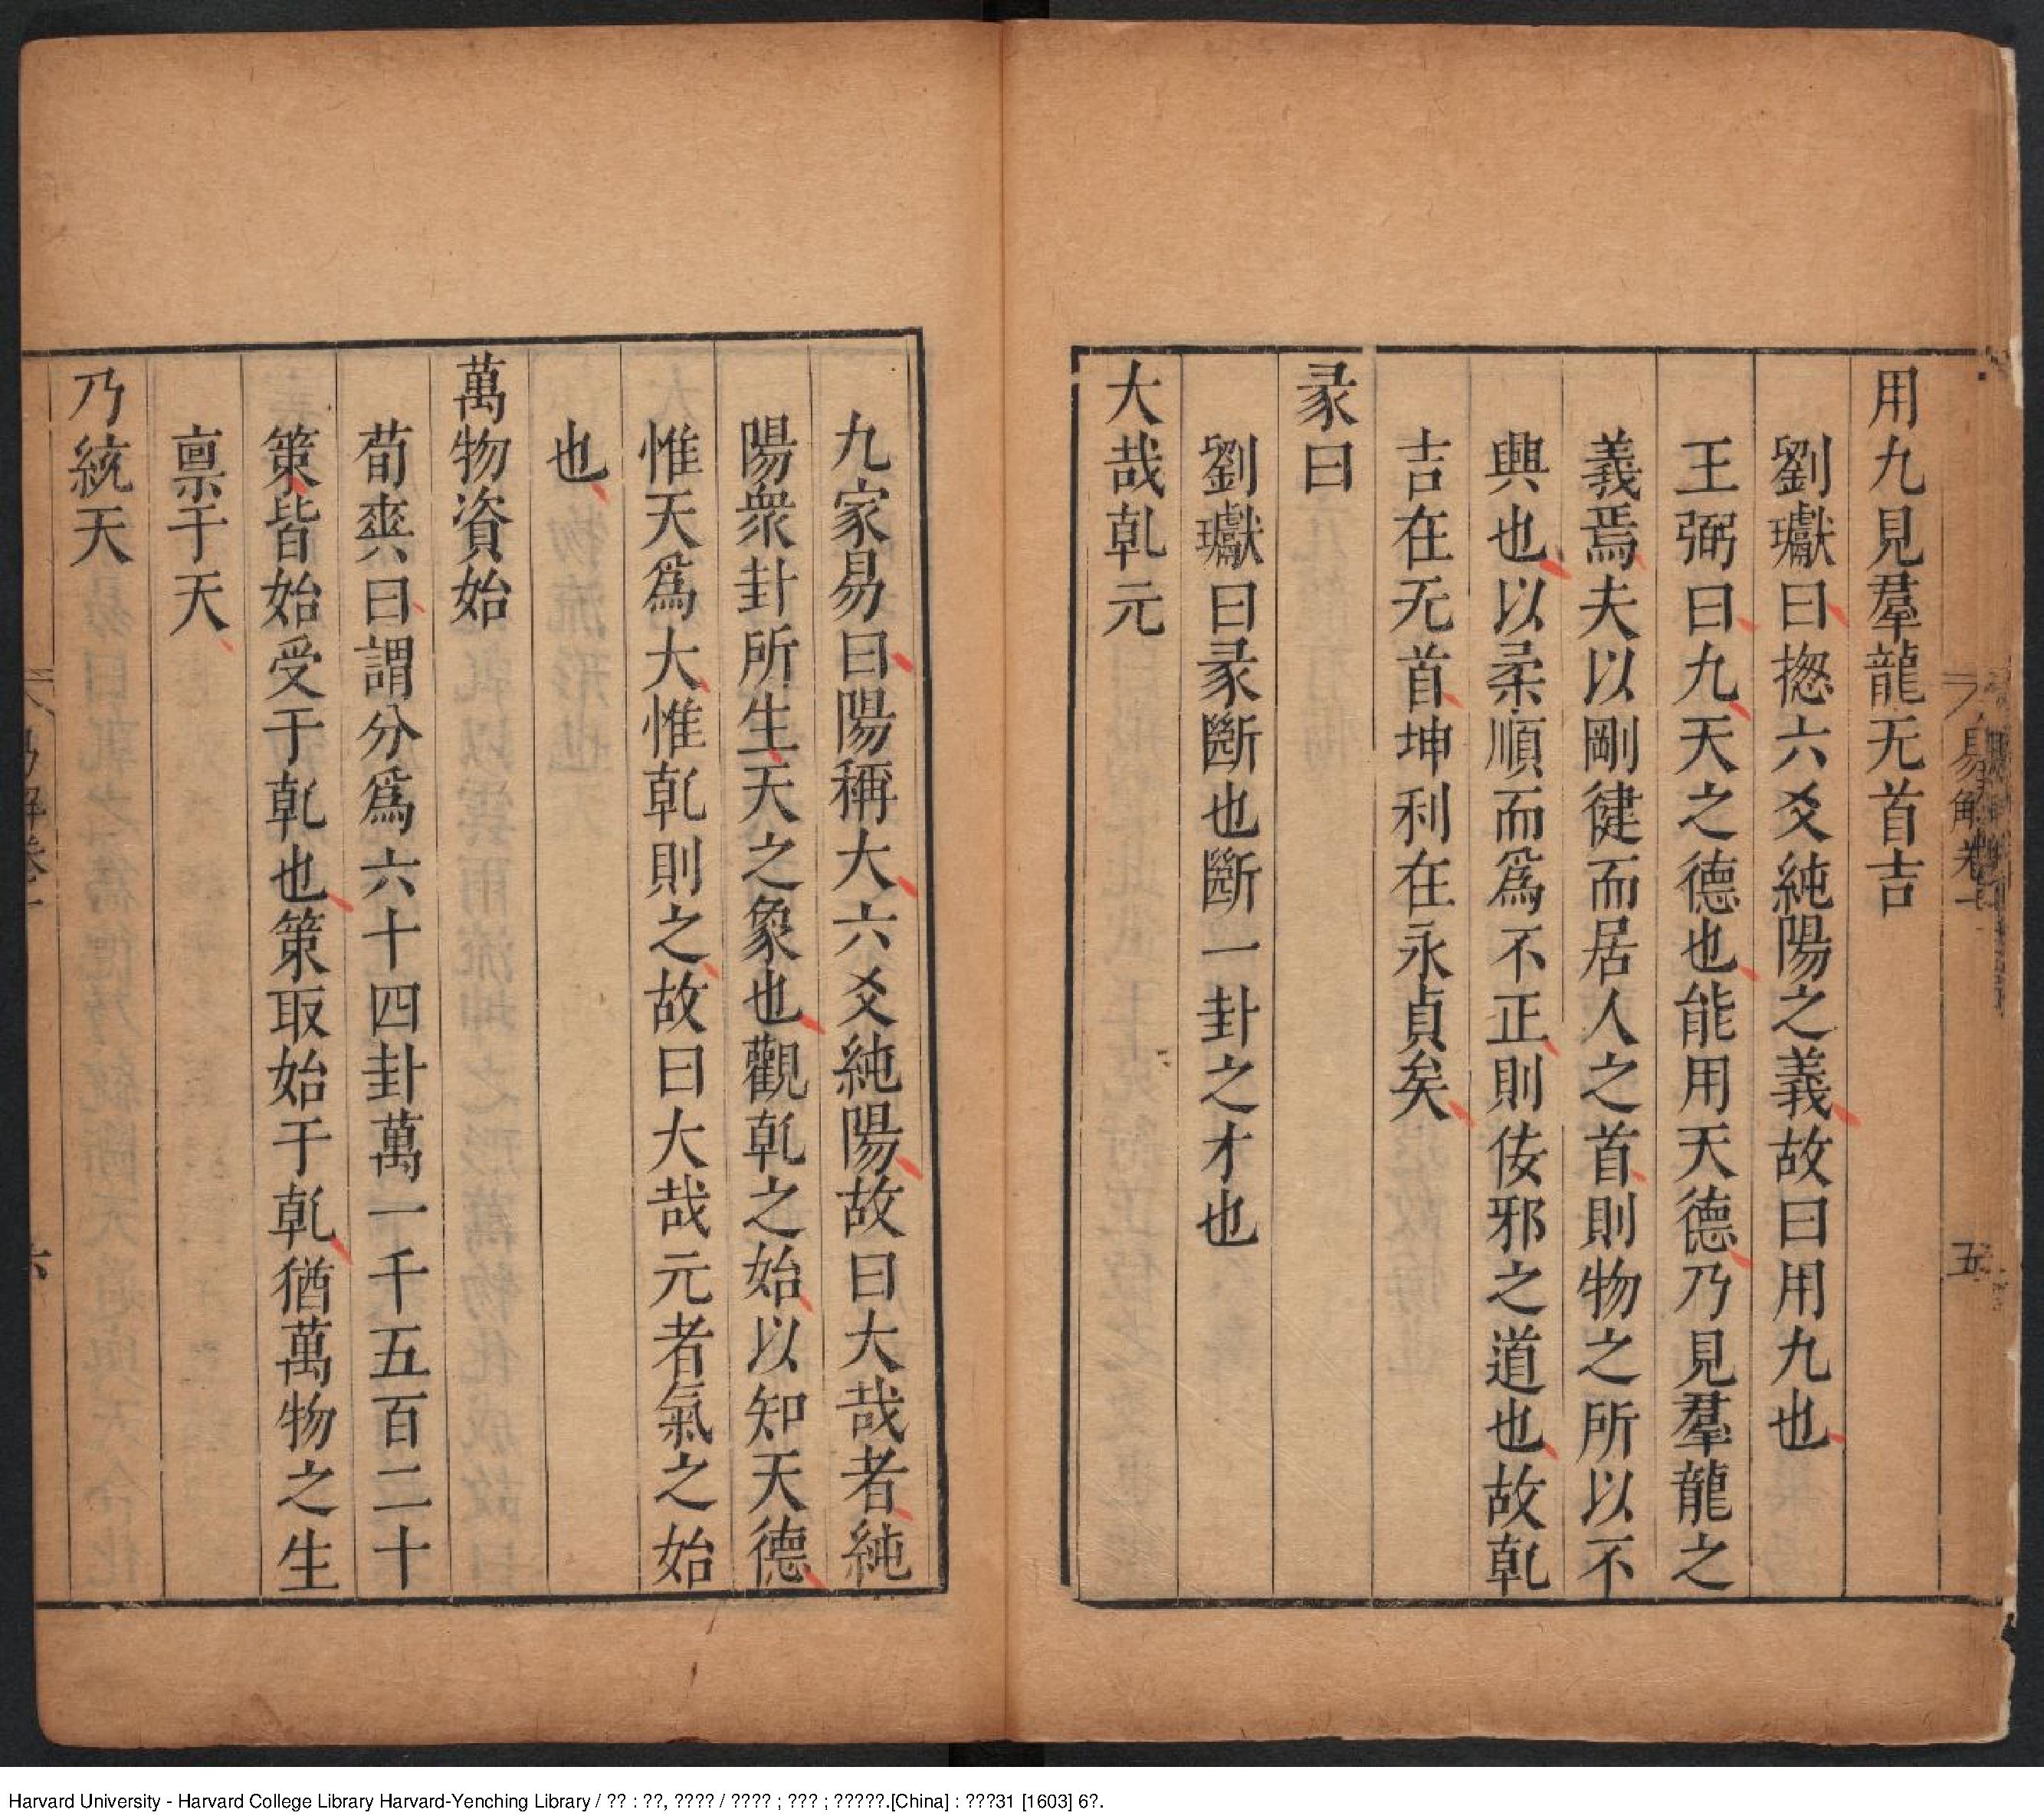 易解卷一
五
用九見羣龍无首吉
劉瓛曰揔六爻純陽之義故曰用九也
王弼曰九天之德也能用天德乃見羣龍之
義焉夫以剛健而居人之首則物之所以不
與也以柔順而爲不正則佞邪之道也故乹
吉在无首坤利在永貞矣
彖曰
劉瓛曰彖斷也斷一卦之才也
大哉乹元
九家易曰陽稱大六爻純陽故曰大哉者純
陽衆卦所生天之象也觀乹之始以知天德
惟天爲大惟乹則之故曰大哉元者氣之始
也
萬物資始
荀爽曰謂分爲六十四卦萬一千五百二十
策皆始受于乹也策取始于乹猶萬物之生
禀于天
乃統天
易解卷一
六
Harvard University - Harvard College Library Harvard-Yenching Library / ?? : ??, ???? / ???? ; ??? ; ?????.[China] : ???31 [1603] 6?.